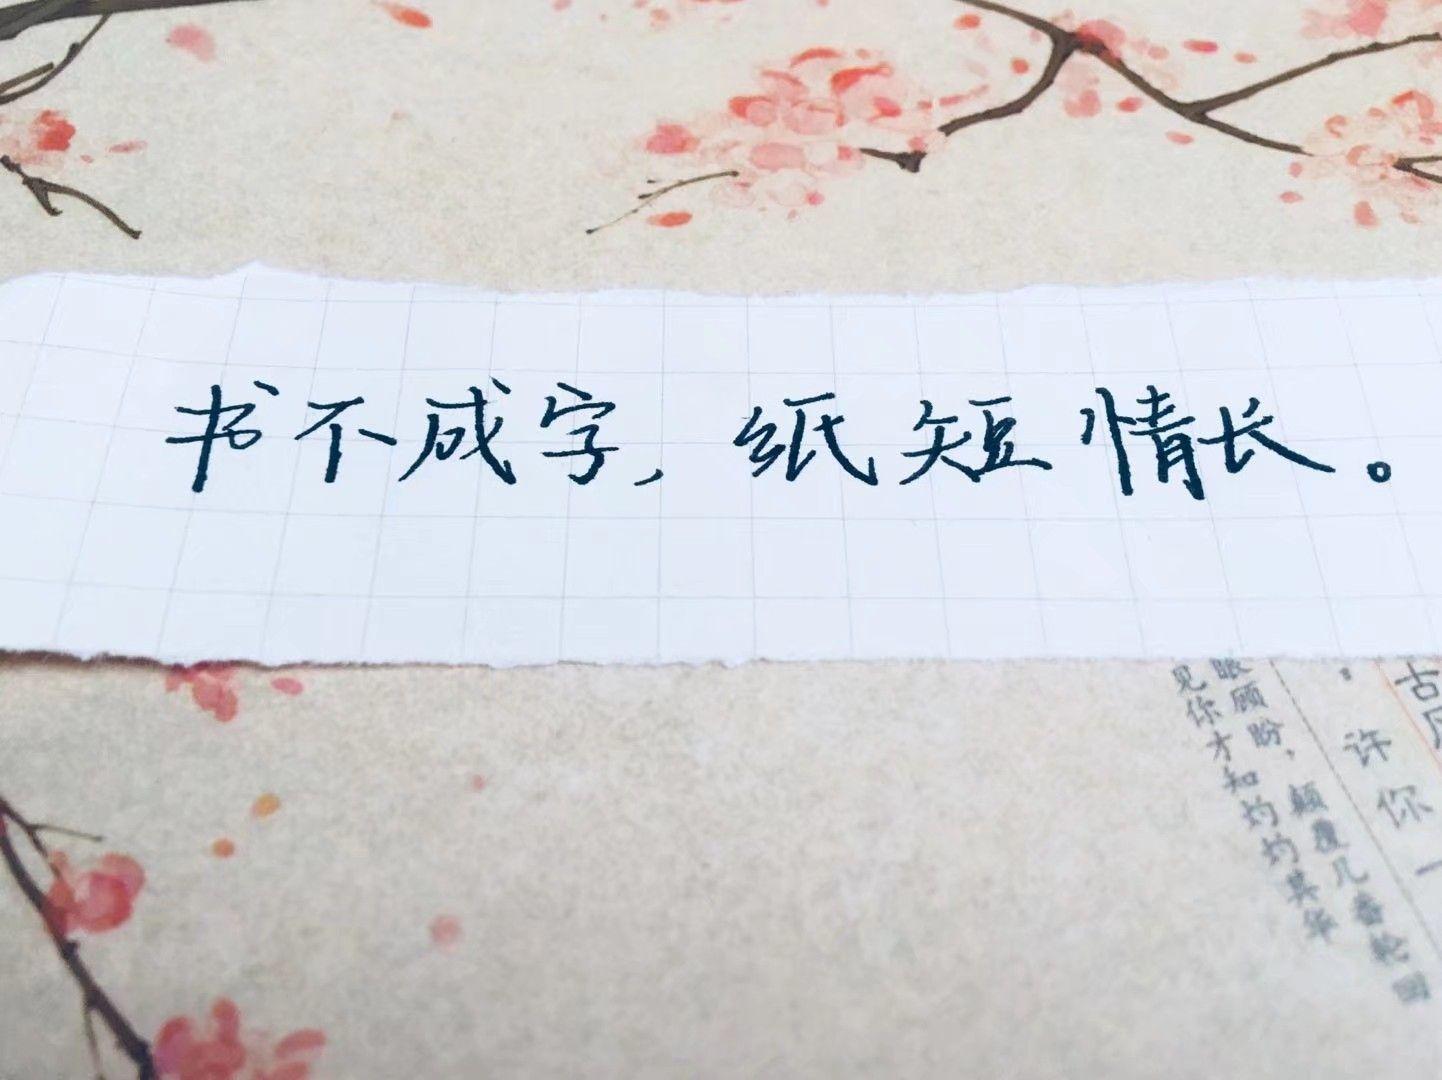 书不成字，纸短情长。
古
许你一
眼顾盼，颠覆几番轮回
见你才知灼灼其华